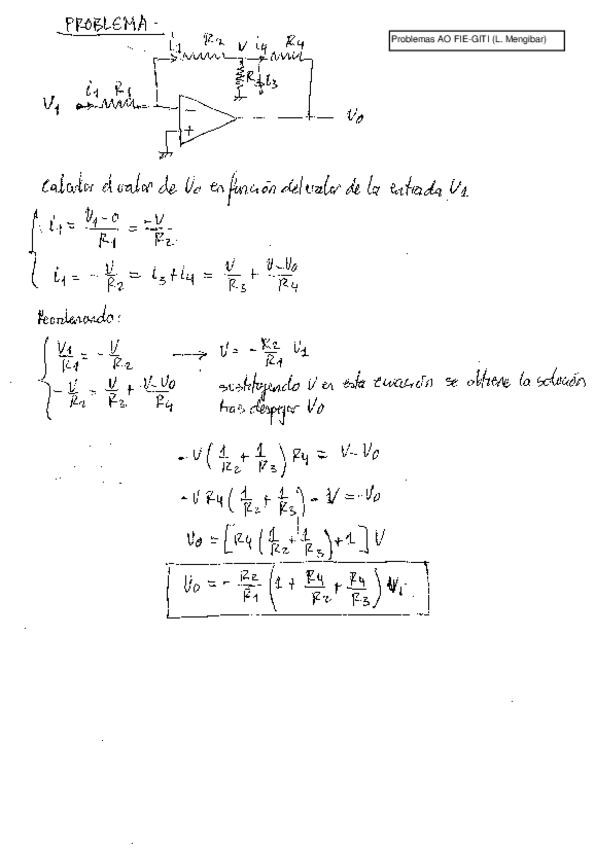 PROBLEMA.-
Problemas AO FIE-GITI (L. Mengibar)
i1 R2 V i4 R4
R3 i3
V1 i1 R1
-
+
V0
Calcular el valor de V0 en función del valor de la entrada V1.
i1 = (V1-0)/R1 = -V/R2
i1 = -V/R2 = i3+i4 = V/R3 + (V-V0)/R4
Reordenando:
V1/R1 = -V/R2 → V = -R2/R1 V1
-V/R2 = V/R3 + (V-V0)/R4 sustituyendo V en esta ecuación se obtiene la solución
tras despejar V0
-V(1/R2 + 1/R3) R4 = V-V0
-V R4(1/R2 + 1/R3) - V = -V0
V0 = [R4(1/R2 + 1/R3)+1] V
V0 = -R2/R1 (1 + R4/R2 + R4/R3) V1